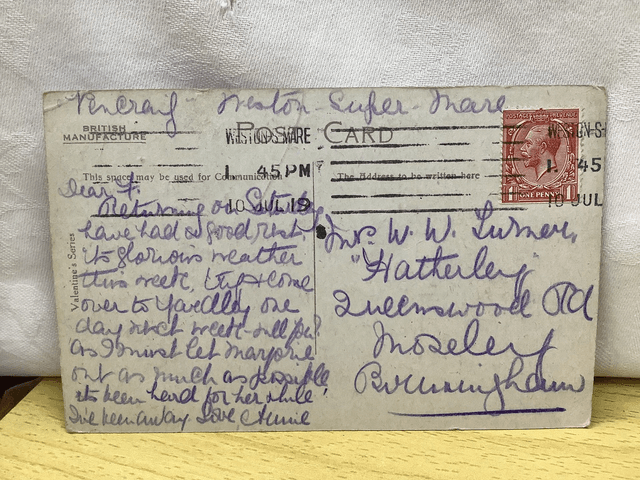 "Pencraig" Weston-Super-Mare
BRITISH
MANUFACTURE
POST CARD
WESTON-S-MARE
1. 45 PM
10 JUL 19
WESTON-S-
1. 45
10 JUL
POSTAGE REVENUE
ONE PENNY
This space may be used for Communication
The Address to be written here
Valentine's Series
Dear F.
Returning on Saturday
have had a good rest.
its glorious weather
this week, try & come
over to Yardley one
day next week - will you?
as I must let Marjorie
out as much as possible
its been hard for her while
I've been away. Love Annie
Mrs W. W. Turner,
"Hatherley"
Queenswood Rd
Moseley
Birmingham